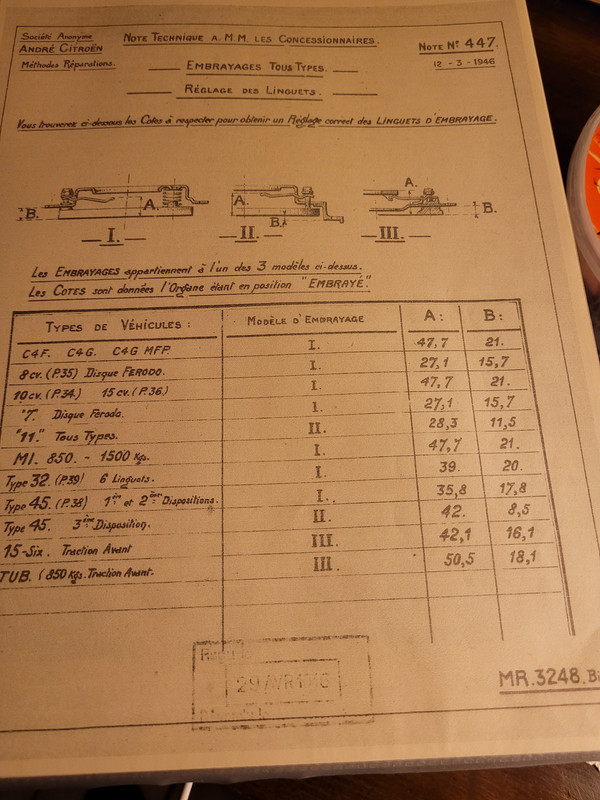 Société Anonyme
ANDRÉ CITROËN
Méthodes Réparations.
NOTE TECHNIQUE A. M. M. LES CONCESSIONNAIRES.
NOTE N° 447.
12 - 3 - 1946
EMBRAYAGES TOUS TYPES.
RÉGLAGE DES LINGUETS.
Vous trouverez ci-dessous les Cotes à respecter pour obtenir un Réglage correct des LINGUETS D'EMBRAYAGE.
B. A. A. B. A. B.
I. II. III.
Les EMBRAYAGES appartiennent à l'un des 3 modèles ci-dessus.
Les COTES sont données l'Organe étant en position "EMBRAYÉ."
TYPES DE VÉHICULES : MODÈLE D'EMBRAYAGE A: B:
C4F. C4G. C4G MFP. I. 47,7 21.
8cv. (P.35) Disque FERODO. I. 27,1 15,7
10cv. (P.34.) 15cv. (P.36.) I. 47,7 21.
"7." Disque Férodo. I. 27,1 15,7
"11." Tous Types. II. 28,3 11,5
MI. 850. - 1500 Kgs. I. 47,7 21.
Type 32. (P.39) 6 Linguets. I. 39. 20.
Type 45. (P.38) 1ère et 2ème Dispositions. I. 35,8 17,8
Type 45. 3ème Disposition. II. 42. 8,5
15-Six. Traction Avant III. 42,1 16,1
TUB. (850 Kgs. Traction Avant. III. 50,5 18,1
29 AVR 1946
MR.3248.